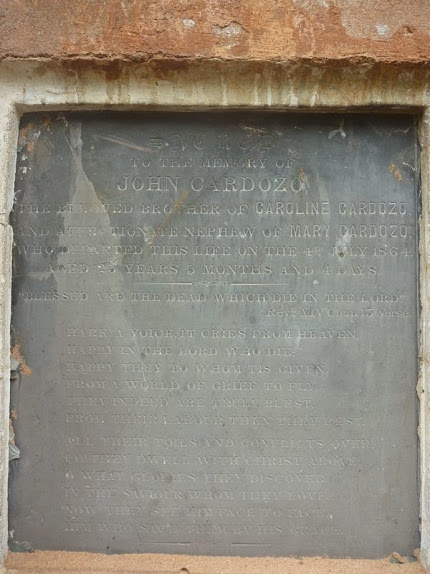 SACRED
TO THE MEMORY OF
JOHN CARDOZO
THE BELOVED BROTHER OF CAROLINE CARDOZO,
AND AFFECTIONATE NEPHEW OF MARY CARDOZO,
WHO DEPARTED THIS LIFE ON THE 4TH JULY 1864
AGED 25 YEARS 5 MONTHS AND 4 DAYS.
"BLESSED ARE THE DEAD WHICH DIE IN THE LORD"
HARK! A VOICE, IT CRIES FROM HEAVEN,
HAPPY IN THE LORD WHO DIE,
HAPPY THEY TO WHOM TIS GIVEN,
FROM A WORLD OF GRIEF TO FLY
THEY INDEED ARE TRULY BLEST
FROM THEIR LABOUR THEN THEY REST
ALL THEIR TOILS AND CONFLICTS OVER,
LO THEY DWELL WITH CHRIST ABOVE
O WHAT GLORIES THEY DISCOVER
IN THE SAVIOUR WHOM THEY LOVE
NOW THEY SEE HIM FACE TO FACE
HIM WHO BY HIS GRACE.